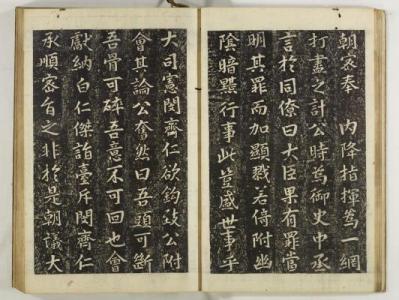 朝密奉 内降指揮爲一網
打盡之計公時爲御史中丞
言於同僚曰大臣果有罪當
明其罪而加顯戮若倚附幽
陰暗黮行事此豈盛世事乎
大司憲閔齊仁欲鉤致公附
會其論公奮然曰吾頭可斷
吾骨可碎吾意不可回也會
獻納白仁傑詣臺斥閔齊仁
承順密旨之非於是朝議大